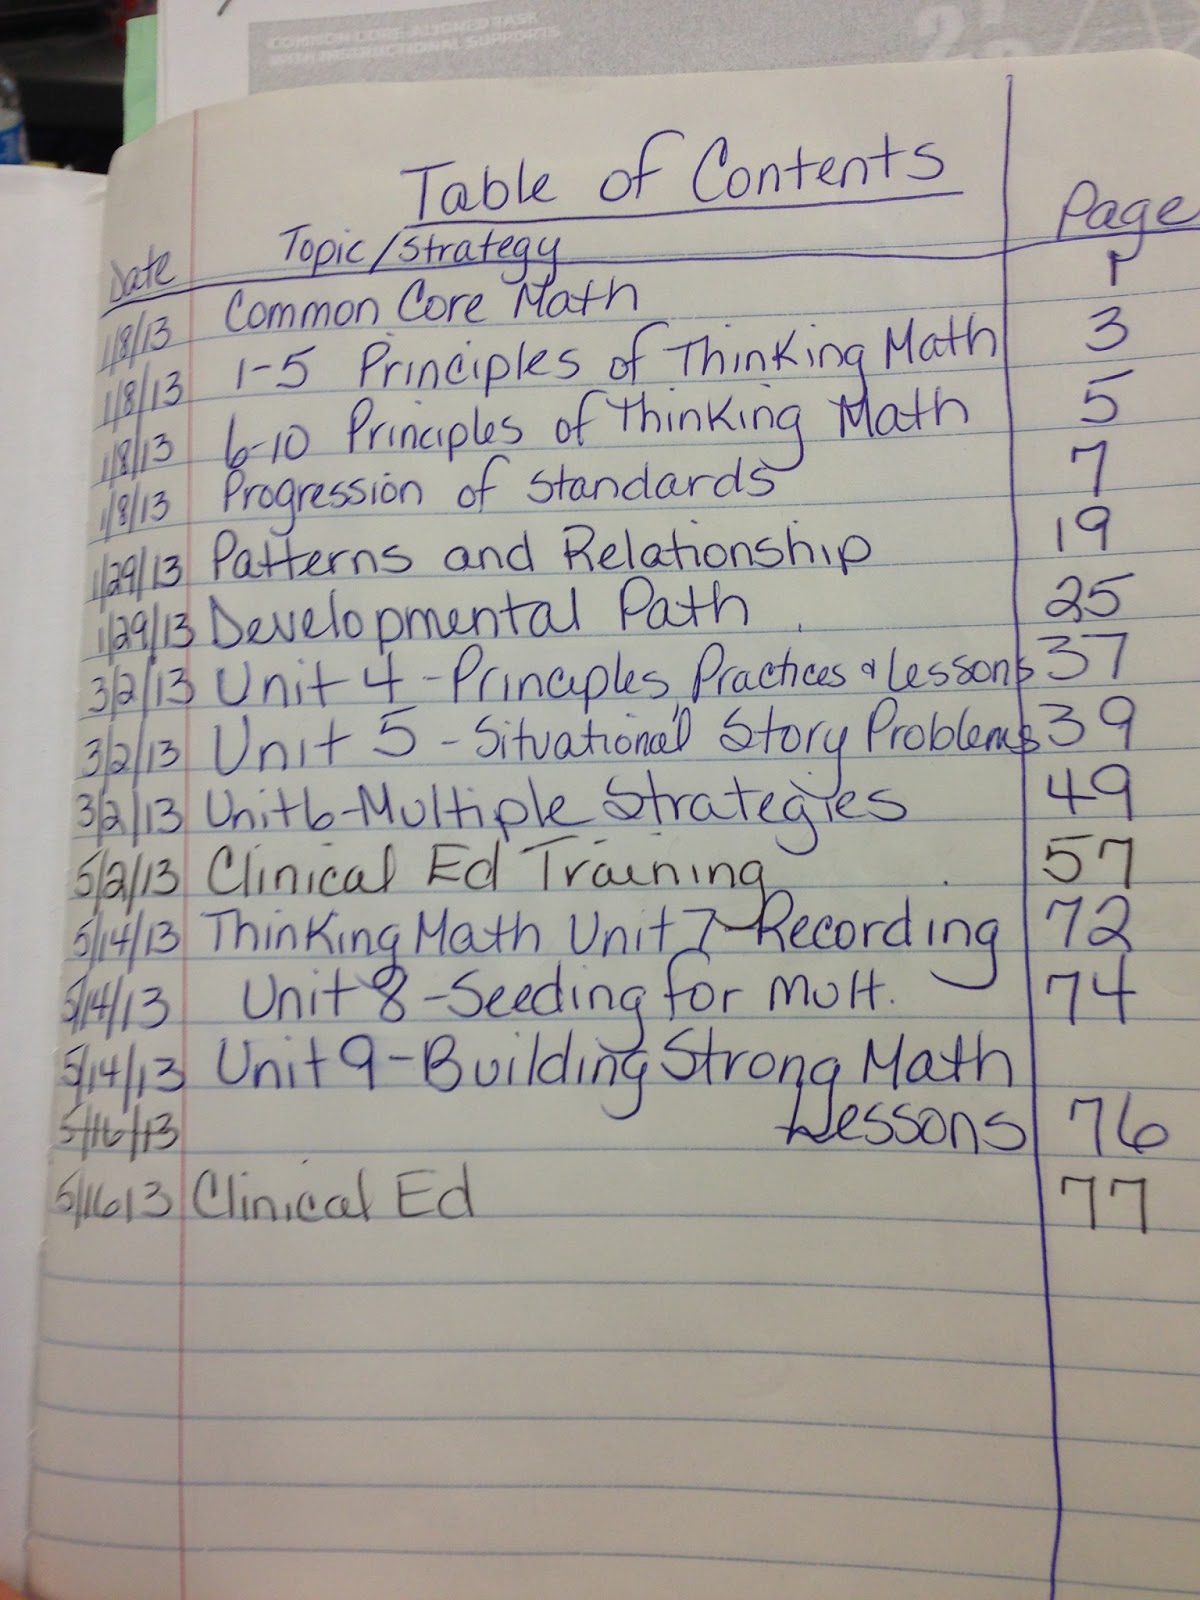 COMMON CORE-ALIGNED TASK
WITH INSTRUCTIONAL SUPPORTS
Table of Contents
Date Topic/Strategy Page
1/8/13 Common Core Math 1
1/8/13 1-5 Principles of Thinking Math 3
1/8/13 6-10 Principles of Thinking Math 5
1/8/13 Progression of Standards 7
1/29/13 Patterns and Relationship 19
1/29/13 Developmental Path 25
3/2/13 Unit 4 - Principles, Practices & Lessons 37
3/2/13 Unit 5 - Situational Story Problems 39
3/2/13 Unit 6 - Multiple Strategies 49
5/2/13 Clinical Ed Training 57
5/14/13 Thinking Math Unit 7 - Recording 72
5/14/13 Unit 8 - Seeding for Mult. 74
5/14/13 Unit 9 - Building Strong Math
5/16/13 Lessons 76
5/16/13 Clinical Ed 77